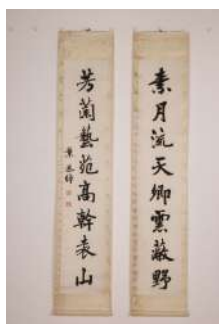 素月流天卿雲蔽野
芳蘭藝苑高幹表山
葉恭綽